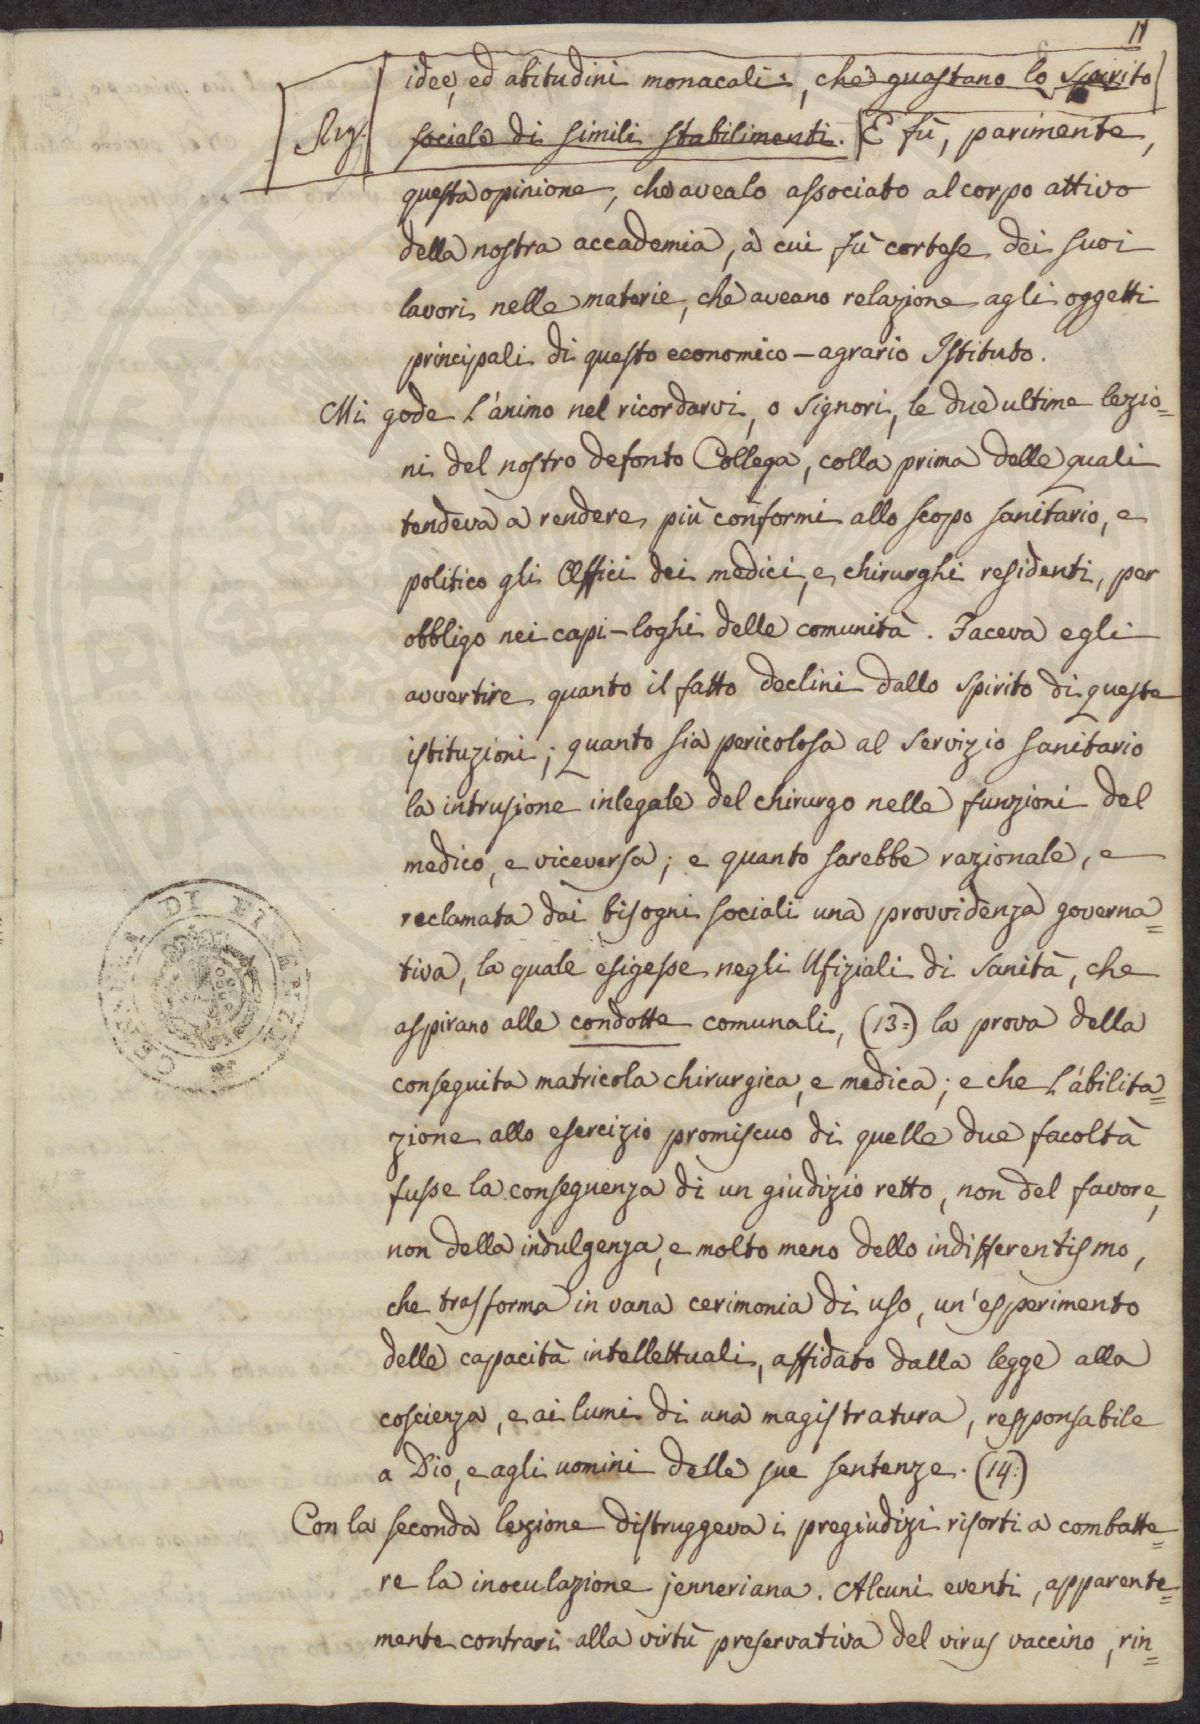 11
idee, ed abitudini monacali, che guastano lo spirito
sociale di simili stabilimenti. E fù, parimente,
questa opinione, che avealo associato al corpo attivo
della nostra accademia, a cui fù cortese dei suoi
lavori nelle materie, che aveano relazione agli oggetti
principali di questo economico-agrario Istituto.
Mi gode l'ánimo nel ricordarvi, o Signori, le due ultime lezio=
ni del nostro defonto Collega, colla prima delle quali
tendeva a rendere più conformi allo scopo sanitario, e
politico gli Uffici dei medici, e chirurghi residenti, per
obbligo nei capi-loghi delle comunità. Faceva egli
avvertire quanto il fatto declini dallo spirito di queste
istituzioni; quanto sia pericolosa al servizio sanitario
la intrusione inlegale del chirurgo nelle funzioni del
medico, e viceversa; e quanto sarebbe razionale, e
reclamata dai bisogni sociali una provvidenza governa=
tiva, la quale esigesse negli Ufiziali di sanità, che
aspirano alle condotte comunali, (13=) la prova della
conseguita matricola chirurgica, e medica; e che l'ábilita=
zione allo esercizio promiscuo di quelle due facoltà
fusse la conseguenza di un giudizio retto, non del favore,
non della indulgenza, e molto meno dello indifferentismo,
che trasforma in vana cerimonia di uso, un'esperimento
delle capacità intellettuali, affidato dalla legge alla
coscienza, e ai lumi di una magistratura, responsabile
a Dio, e agli uomini delle sue sentenze. (14:)
Con la seconda lezione distruggeva i pregiudizi risorti a combatte=
re la inoculazione jenneriana. Alcuni eventi, apparente=
mente contrari alla virtù preservativa del virus vaccino, rin=